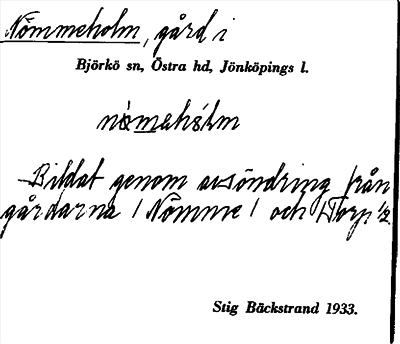 Nömmeholm, gård i
Björkö sn, Östra hd, Jönköpings l.
nömehòlm
Bildat genom avsöndring från
gårdarna 1 Nömme 1 och Torp 1/2
Stig Bäckstrand 1933.